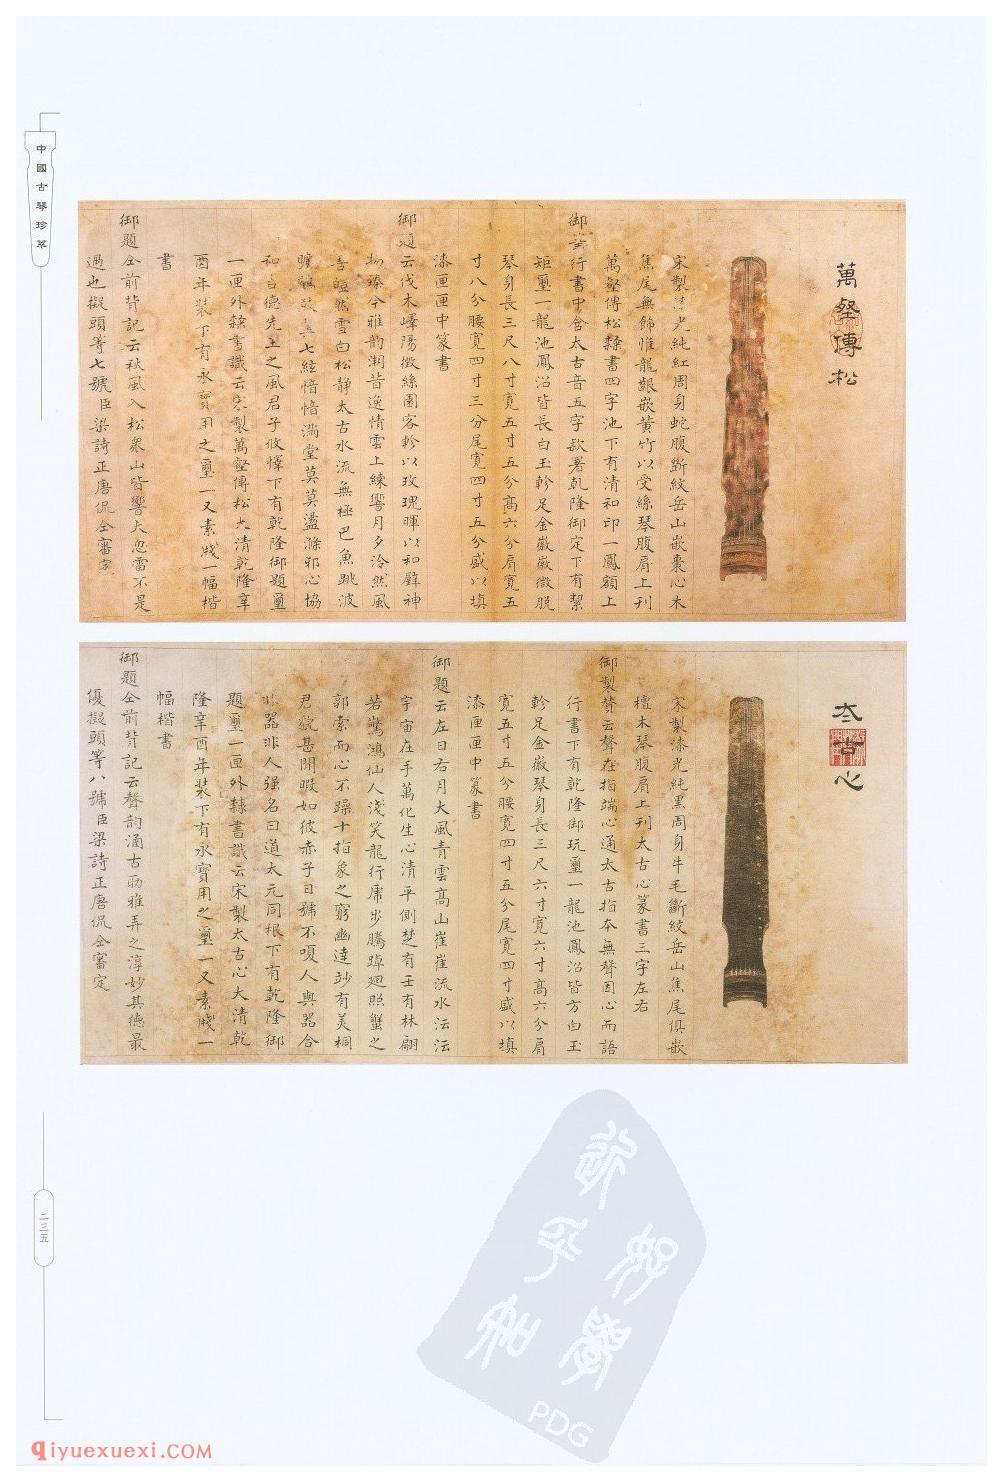 中國古琴珍萃
萬壑傳松
宋製漆光純紅周身蛇腹斷紋岳山嵌棗心木
焦尾無飾惟龍齦嵌黃竹以受絲琴腹肩上刊
萬壑傳松隸書四字池下有清和印一鳳額上
御 行書中含太古音五字款署乾隆御定下有絜
矩璽一龍池鳳沼皆長白玉軫足金徽徽微脫
琴身長三尺八寸寬五寸五分高六分肩寬五
寸八分腰寬四寸三分尾寬四寸五分盛以填
漆匣匣中篆書
御題云伐木嶧陽徵絲園客軫以玫瑰暉以和璧神
 臻今雅韵溯昔逸情雲上練響月夕泠然風
善 雪白松靜太古水流無極巴魚跳波
曠 七絃愔愔滿堂莫莫盪滌邪心協
和 德先王之風君子攸懌下有乾隆御題璽
一匣外隸書識云宋製萬壑傳松大清乾隆辛
酉年裝下有永寶用之璽一又素牋一幅楷
書
御題仝前背記云秋風入松衆山皆響大忽雷不是
過也擬頭等七號臣梁詩正唐侃仝審定
太古心
宋製漆光純黑周身牛毛斷紋岳山焦尾俱嵌
檀木琴腹肩上刊太古心篆書三字左右
御製贊云聲在指端心通太古指本無聲因心而語
行書下有乾隆御玩璽一龍池鳳沼皆方白玉
軫足金徽琴身長三尺六寸寬六寸高六分肩
寬五寸五分腰寬四寸五分尾寬四寸盛以填
漆匣匣中篆書
御題云左日右月大風青雲高山崔崔流水沄沄
宇宙在手萬化生心清平側楚有壬有林翩
若驚鴻仙人淺笑龍行虎步騰踔迴照蟹之
郭索而心不躁十指象之窮幽達妙有美桐
君 甚閒暇如彼赤子日號不嗄人與器合
非器非人强名曰道太元同根下有乾隆御
題璽一匣外隸書識云宋製太古心大清乾
隆辛酉年裝下有永寶用之璽一又素牋一
幅楷書
御題仝前背記云聲韵涵古 雅弄之淳妙其德最
優擬頭等八號臣梁詩正唐侃仝審定
二三五
PDG
qiyuexuexi.COM